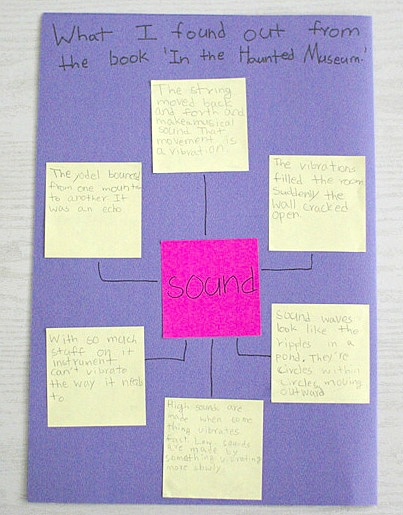 What I found out from
the book 'In the Haunted Museum.'
The string
moved back
and forth and
make a musical
sound. That
movement is
a vibration.
The yodel bounced
from one mountain
to another It
was an echo
The vibrations
filled the room
Suddenly the
wall cracked
open.
sound
With so much
stuff on it
instrument
can't vibrate
the way it needs
to.
Sound waves
look like the
ripples in a
pond. They're
circles within
circles moving
outward
High sounds are
made when some
thing vibrates
fast. Low sounds
are made by
something vibrating
more slowly.